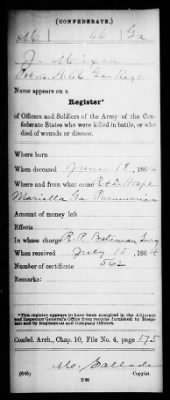 (CONFEDERATE.)
M | 66 | Ga
J. Mixon
Co. H. 66 Ga Regt
Name appears on a
Register*
of Officers and Soldiers of the Army of the Confederate
States who were killed in battle, or who
died of wounds or disease.
Where born
When deceased June 18, 1864
Where and from what cause Hosp
Marietta Ga Pneumonia
Amount of money left
Effects
In whose charge R. R. Bateman Surg
When received July 15, 1864
Number of certificate 562
Remarks:
*This register appears to have been compiled in the Adjutant
and Inspector General's Office from returns furnished by Hospitals
and by Regimental and Company Officers.
Confed. Arch., Chap. 10, File No. 4, page 175
Copyist.